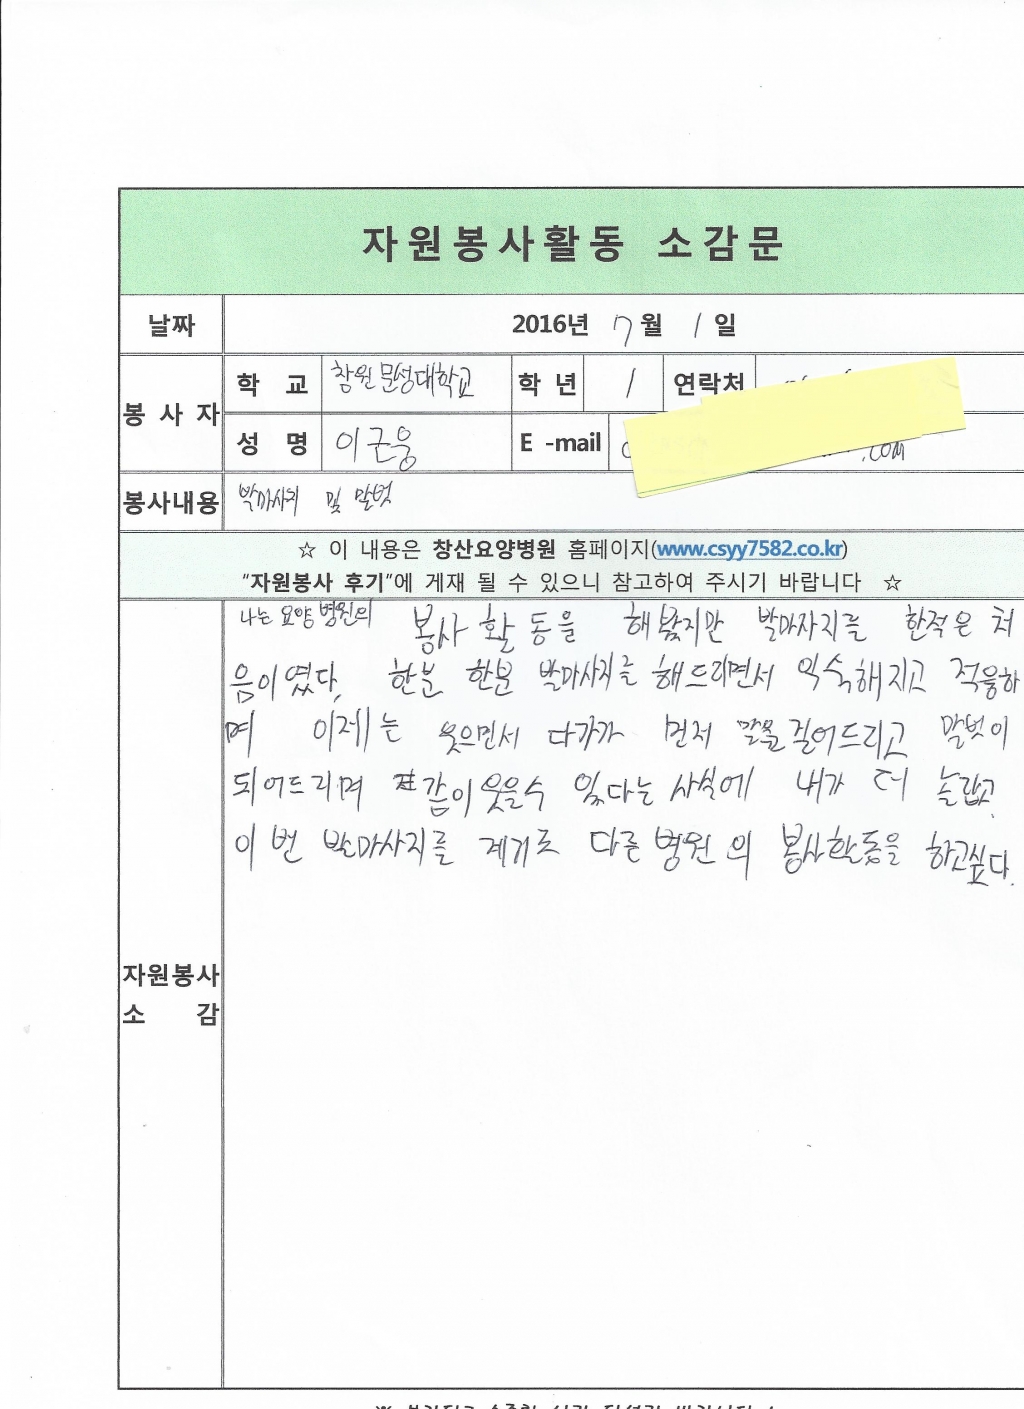 자원봉사활동 소감문
날짜 2016년 7월 1일
봉사자 학 교 창원문성대학교 학 년 1 연락처
성 명 이근웅 E -mail .com
봉사내용 발마사지 및 말벗
☆ 이 내용은 창산요양병원 홈페이지(www.csyy7582.co.kr)
"자원봉사 후기"에 게재 될 수 있으니 참고하여 주시기 바랍니다 ☆
자원봉사 소 감
나는 요양병원의 봉사활동을 해봤지만 발마사지를 한적은 처
음이였다, 한분 한분 발마사지를 해드리면서 익숙해지고 적응하
며 이제는 웃으면서 다가가 먼저 말을 걸어드리고 말벗이
되어드리며 같이 웃을수 있다는 사실에 내가 더 놀랍고
이번 발마사지를 계기로 다른 병원의 봉사활동을 하고싶다.